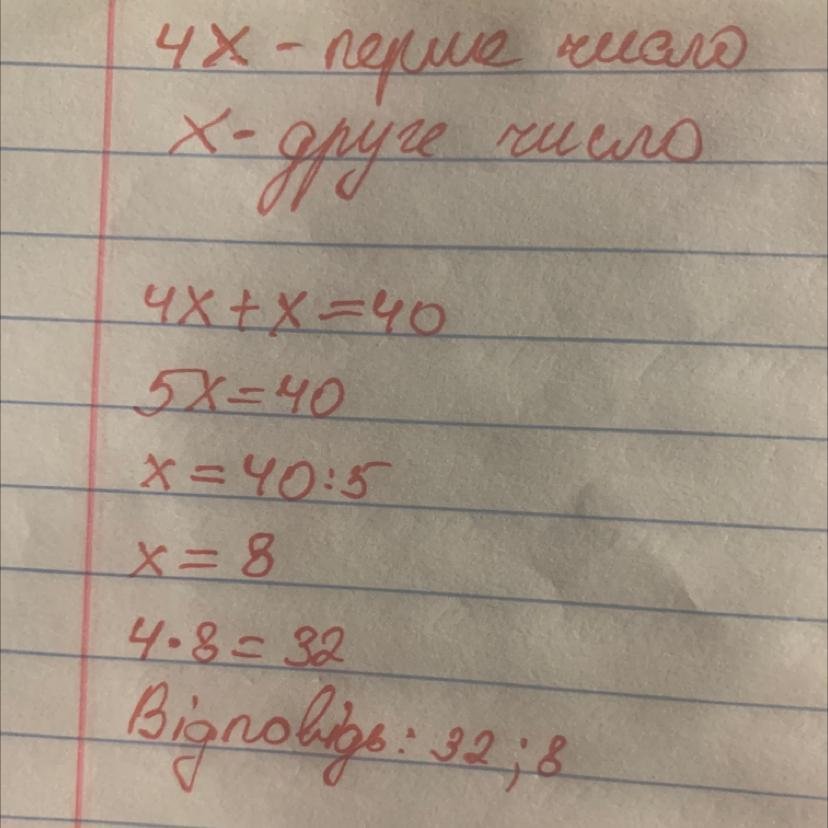 4x - перше число
x - друге число
4x + x = 40
5x = 40
x = 40 : 5
x = 8
4 · 8 = 32
Відповідь: 32 ; 8